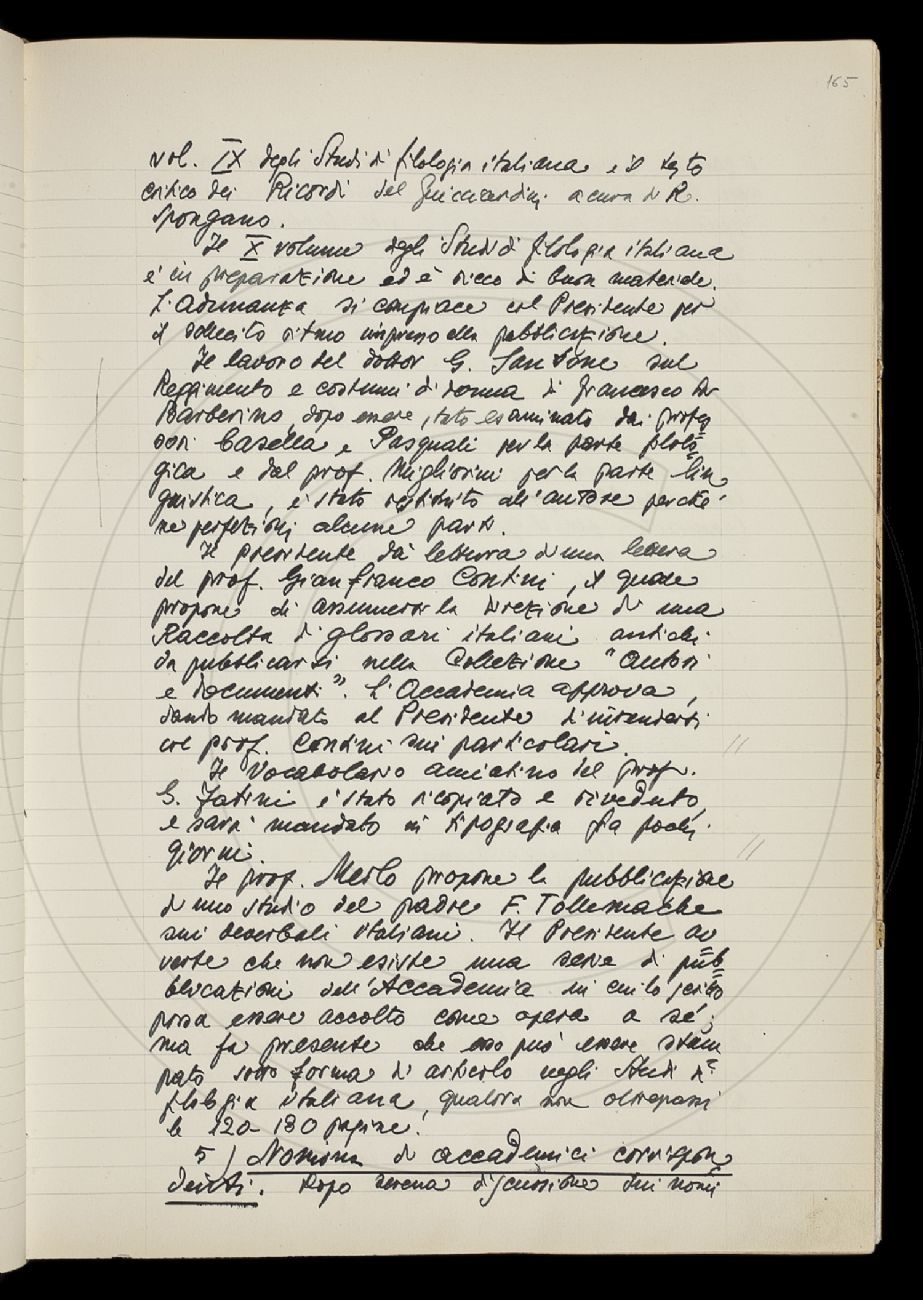 165
vol. IX degli Studi di filologia italiana e il testo
critico dei Ricordi del Guicciardini a cura di R.
Spongano.
Il X volume degli Studi di filologia italiana
è in preparazione ed è ricco di buon materiale.
L'Adunanza si compiace col Presidente per
il sollecito ritmo impresso alla pubblicazione.
Il lavoro del dottor G. Sansone sul
Reggimento e costumi di donna di Francesco da
Barberino, dopo essere stato esaminato dai profes
sori Casella e Pasquali per la parte filolo=
gica e dal prof. Migliorini per la parte lin
guistica, è stato restituito all'autore perché
ne perfezioni alcune parti.
Il Presidente dà lettura di una lettera
del prof. Gianfranco Contini, il quale
propone di assumersi la direzione di una
Raccolta di glossari italiani antichi
da pubblicarsi nella Collezione "Autori
e documenti". L'Accademia approva,
dando mandato al Presidente d'intendersi
col prof. Contini sui particolari. //
Il Vocabolario amiatino del prof.
G. Fatini è stato ricopiato e riveduto,
e sarà mandato in tipografia fra pochi
giorni. //
Il prof. Merlo propone la pubblicazione
di uno studio del padre F. Tollemache
sui deverbali italiani. Il Presidente av=
verte che non esiste una serie di pub=
blicazioni dell'Accademia in cui lo scritto
possa essere accolto come opera a sé;
ma fa presente che esso può essere stam
pato sotto forma di articolo negli Studi di
filologia italiana, qualora non oltrepassi
le 120-130 pagine.
5) Nomina di accademici corrispon
denti. Dopo serena discussione sui nomi